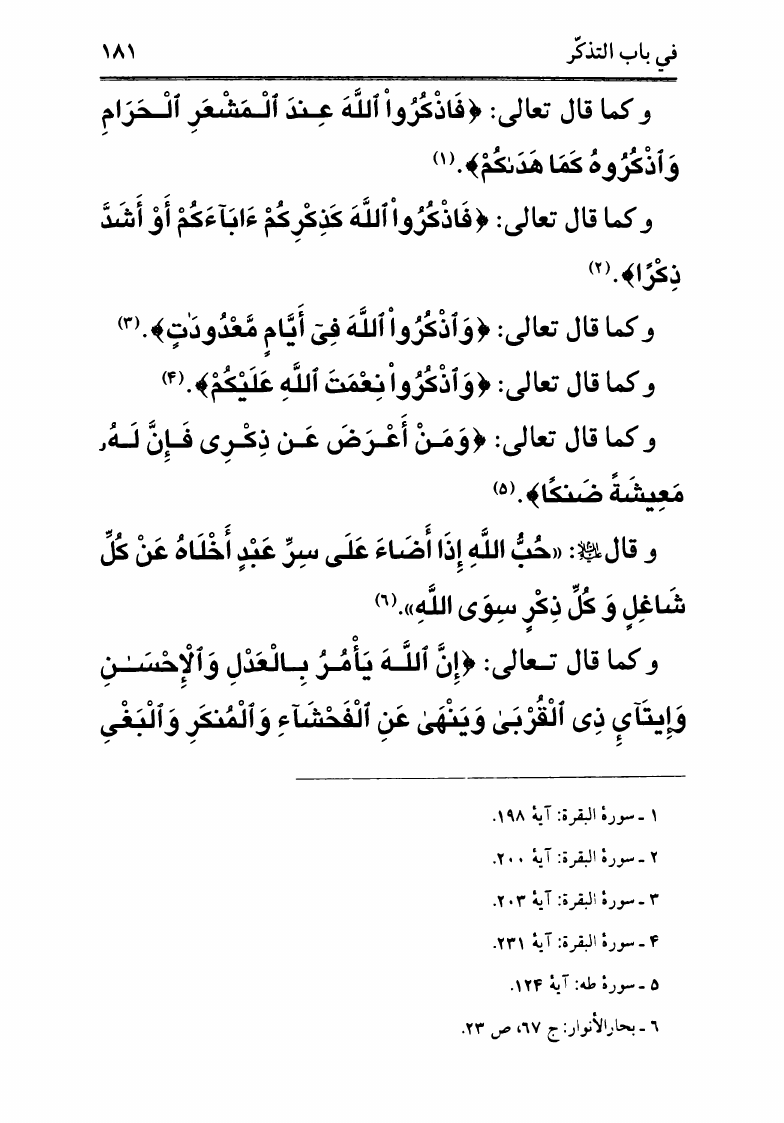 في باب التذكّر ١٨١
و كما قال تعالى: ﴿فَاذْكُرُواْ ٱللَّهَ عِـندَ ٱلْـمَشْعَرِ ٱلْـحَرَامِ
وَٱذْكُرُوهُ كَمَا هَدَىٰكُمْ﴾.(١)
و كما قال تعالى: ﴿فَاذْكُرُواْ ٱللَّهَ كَذِكْرِكُمْ ءَابَآءَكُمْ أَوْ أَشَدَّ
ذِكْرًا﴾.(٢)
و كما قال تعالى: ﴿وَٱذْكُرُواْ ٱللَّهَ فِىٓ أَيَّامٍ مَّعْدُودَٰتٍ﴾.(٣)
و كما قال تعالى: ﴿وَٱذْكُرُواْ نِعْمَتَ ٱللَّهِ عَلَيْكُمْ﴾.(۴)
و كما قال تعالى: ﴿وَمَـنْ أَعْـرَضَ عَـن ذِكْـرِى فَـإِنَّ لَـهُۥ
مَعِيشَةً ضَنكًا﴾.(۵)
و قال ﷺ: «حُبُّ اللَّهِ إِذَا أَضَاءَ عَلَى سِرِّ عَبْدٍ أَخْلَاهُ عَنْ كُلِّ
شَاغِلٍ وَ كُلِّ ذِكْرٍ سِوَى اللَّهِ».(٦)
و كما قال تـعالى: ﴿إِنَّ ٱللَّـهَ يَأْمُـرُ بِـالْعَدْلِ وَٱلْإِحْسَـٰـنِ
وَإِيتَآىِٕ ذِى ٱلْقُرْبَىٰ وَيَنْهَىٰ عَنِ ٱلْفَحْشَآءِ وَٱلْمُنكَرِ وَٱلْبَغْىِ
١ ـ سورۀ البقرة: آیۀ ١٩٨.
٢ ـ سورۀ البقرة: آیۀ ٢٠٠.
٣ ـ سورۀ البقرة: آیۀ ٢٠٣.
۴ ـ سورۀ البقرة: آیۀ ٢٣١.
۵ ـ سورۀ طه: آیۀ ١٢۴.
٦ ـ بحارالأنوار: ج ٦٧، ص ٢٣.